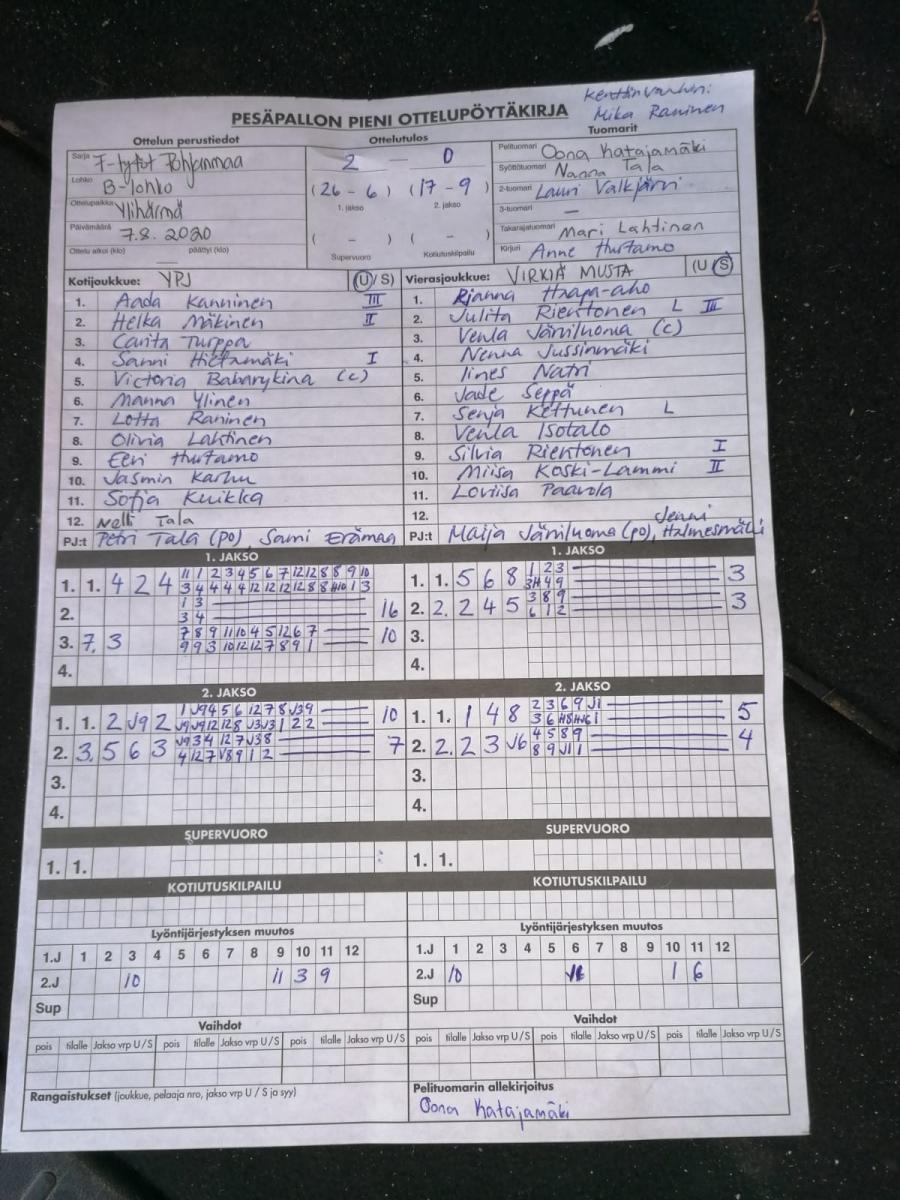 Kenttänvanhin:
Mika Raninen
PESÄPALLON PIENI OTTELUPÖYTÄKIRJA
Ottelun perustiedot Ottelutulos Tuomarit
Sarja F-tytöt Pohjanmaa 2 - 0 Pelituomari Oona Katajamäki
Lohko B-lohko (26 - 6) (17 - 9) Syöttötuomari Nanna Tala
Ottelupaikka Ylihärmä 1. jakso 2. jakso 2-tuomari Lauri Valkjärvi
Päivämäärä 7.8. 2020 3-tuomari —
( - ) ( - ) Takarajatuomari Mari Lahtinen
Ottelu alkoi (klo) päättyi (klo) Supervuoro Kotiutuskilpailu Kirjuri Anne Hurtamo
Kotijoukkue: YPJ (U/S) Vierasjoukkue: VIRKIÄ MUSTA (U/S)
1. Aada Kanninen III 1. Rianna Haapa-aho
2. Helka Mäkinen II 2. Julita Rientonen L III
3. Carita Turppa 3. Venla Järviluoma (c)
4. Sanni Hietamäki I 4. Nenna Jussinmäki
5. Victoria Babarykina (c) 5. Iines Natri
6. Manna Ylinen 6. Jade Seppä
7. Lotta Raninen 7. Senja Kettunen L
8. Olivia Lahtinen 8. Venla Isotalo
9. Eevi Hurtamo 9. Silvia Rientonen I
10. Jasmin Karhu 10. Miisa Koski-Lammi II
11. Sofja Kuikka 11. Loviisa Paavola
12. Nelli Tala 12.
PJ:t Petri Tala (PO) Sami Erämaa PJ:t Maija Järviluoma (po), Jenni Halmesmäki
1. JAKSO 1. JAKSO
1. 1. 4 2 4 11 1 2 3 4 5 6 7 12 12 8 8 9 10 1. 1. 5 6 8 1 2 3 3
3 4 4 4 4 12 12 12 12 8 8 10 1 3 4 9
2. 1 3 16 2. 2. 2 4 5 3 8 9 3
3 4 6 1 2
3. 7. 3 7 8 9 11 10 4 5 12 6 7 10 3.
9 9 3 10 12 12 7 8 9 1
4. 4.
2. JAKSO 2. JAKSO
1. 1. 2 V9 2 1 V9 4 5 6 12 7 8 V3 9 10 1. 1. 1 4 8 2 3 6 9 V1 5
V9 V9 12 12 8 V3 V3 1 2 2
2. 3. 5 6 3 V9 3 4 12 7 V3 8 7 2. 2. 2 3 V6 4 5 8 9 4
4 12 7 V8 9 1 2 8 9 V1 1
3. 3.
4. 4.
SUPERVUORO SUPERVUORO
1. 1. 1. 1.
KOTIUTUSKILPAILU KOTIUTUSKILPAILU
Lyöntijärjestyksen muutos Lyöntijärjestyksen muutos
1.J 1 2 3 4 5 6 7 8 9 10 11 12 1.J 1 2 3 4 5 6 7 8 9 10 11 12
2.J 10 11 3 9 2.J 10 1 6
Sup Sup
Vaihdot Vaihdot
pois tilalle Jakso vrp U/S pois tilalle Jakso vrp U/S pois tilalle Jakso vrp U/S pois tilalle Jakso vrp U/S pois tilalle Jakso vrp U/S pois tilalle Jakso vrp U/S
Rangaistukset (joukkue, pelaaja nro, jakso vrp U / S ja syy) Pelituomarin allekirjoitus
Oona Katajamäki